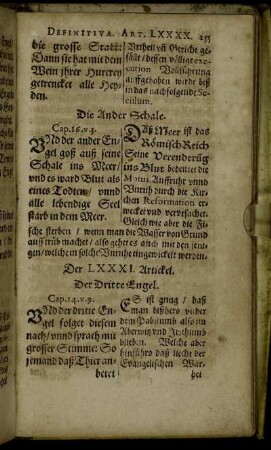 DEFINITIVA. ART. LXXXX. 253
die grosse Stadt:
Dann sie hat mit dem
Wein jhrer Hurerey
getrencket alle Hey-
den.
Vrtheil vñ Gericht ge-
fället / dessen völlige exe-
cution Vollführung
auffgehoben würde biß
in das nachfolgende Se-
culum.
Die Ander Schale.
Cap.16.v.3.
VNd der ander En-
gel goß auß seine
Schale ins Meer/
vnd es ward Blut als
eines Todten / vnd
alle lebendige Seel
starb in dem Meer.
DAß Meer ist das
Römisch Reich
Seine Verenderũg
ins Blut bedeutet die
Motus, Auffruhr vnnd
Vnruh durch die Kir-
chen Reformation er-
wecket vnd vervrsachet.
Gleich wie aber die Fi-
sche sterben / wenn man die Wasser von Grund
auß trüb machet / also gehet es auch mit den jeni-
gen / welche in solche Vnruhe eingewickelt werden.
Der LXXXI. Artickel.
Der Dritte Engel.
Cap.14.v.9.
VNd der dritte En-
gel folget diesem
nach / vnnd sprach mit
grosser Stimme: So
jemand daß Thier an-
betet
ES ist gnug / daß
man bißhero vnder
dem Pabstumb also im
Aberwitz vnd Jrrthumb
blieben. Welche aber
hinführo daß liecht der
Evangelischen War-
hei